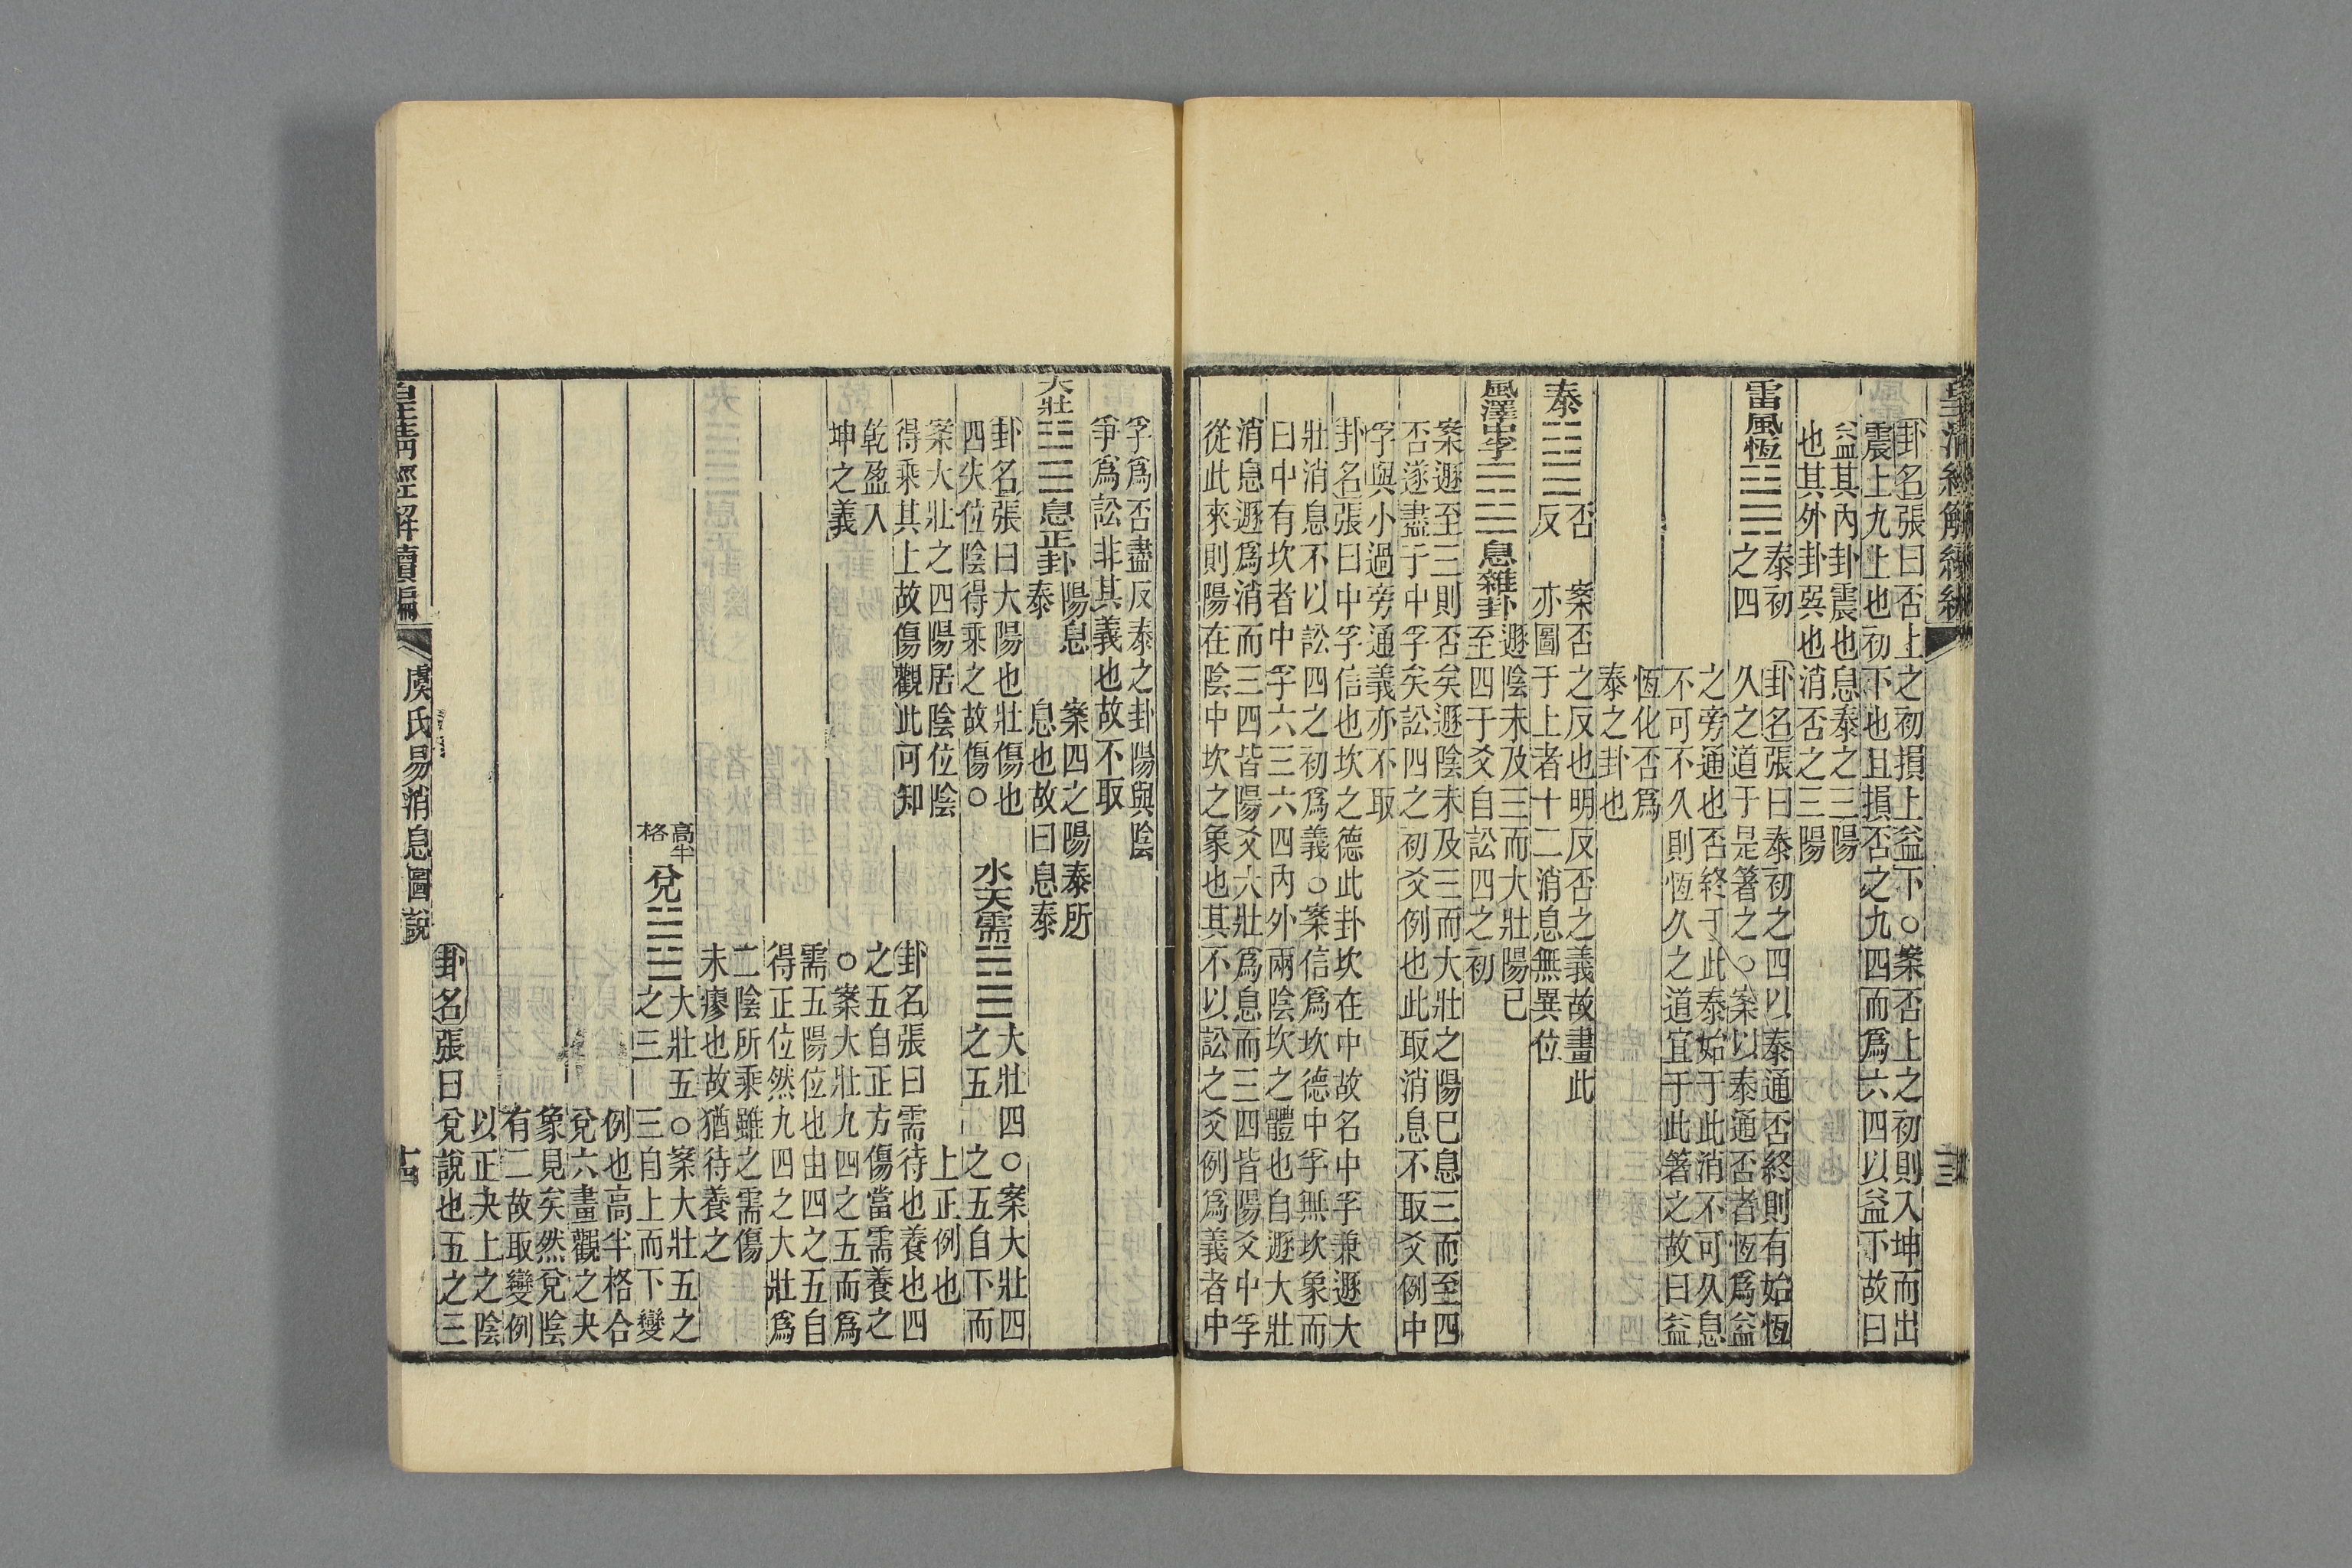 皇清經解續編
卦名張曰否上之初損上益下○案否上之初則入坤而出
震上九上也初下也且損否之九四而爲六四以益下故曰
益其內卦震也息泰之三陽
也其外卦巽也消否之三陽
雷風恆䷟泰初
之四
卦名張曰泰初之四以泰通否終則有始恆
久之道于是箸之○案以泰通否者恆爲益
之旁通也否終于此泰始于此消不可久息
不可不久則恆久之道宜于此箸之故曰益
恆化否爲
泰之卦也
泰䷊否
反
案否之反也明反否之義故畫此
亦圖于上者十二消息無異位
風澤中孚䷼息雜卦
遯陰未及三而大壯陽已
至四于爻自訟四之初
案遯至三則否矣遯陰未及三而大壯之陽已息三而至四
否遂盡于中孚矣訟四之初爻例也此取消息不取爻例中
孚與小過旁通義亦不取
卦名張曰中孚信也坎之德此卦坎在中故名中孚兼遯大
壯消息不以訟四之初爲義○案信爲坎德中孚無坎象而
曰中有坎者中孚六三六四內外兩陰坎之體也自遯大壯
消息遯爲消而三四皆陽爻大壯爲息而三四皆陽爻中孚
從此來則陽在陰中坎之象也其不以訟之爻例爲義者中
孚爲否盡反泰之卦陽與陰
爭爲訟非其義也故不取
大壯䷡息正卦
陽息
泰
案四之陽泰所
息也故曰息泰
卦名張曰大陽也壯傷也
四失位陰得乘之故傷○
案大壯之四陽居陰位陰
得乘其上故傷觀此可知
乾盈入
坤之義
水天需䷄大壯四
之五
○案大壯四
之五自下而
上正例也
卦名張曰需待也養也四
之五自正方傷當需養之
○案大壯九四之五而爲
需五陽位也由四之五自
得正位然九四之大壯爲
二陰所乘雖之需傷
未瘳也故猶待養之
高半
格
兌䷹大壯五
之三
○案大壯五之
三自上而下變
例也高半格合
兌六畫觀之夬
象見矣然兌陰
有二故取變例
以正夬上之陰
卦名張曰兌說也五之三
皇清經解續編
虞氏易消息圖說
十四